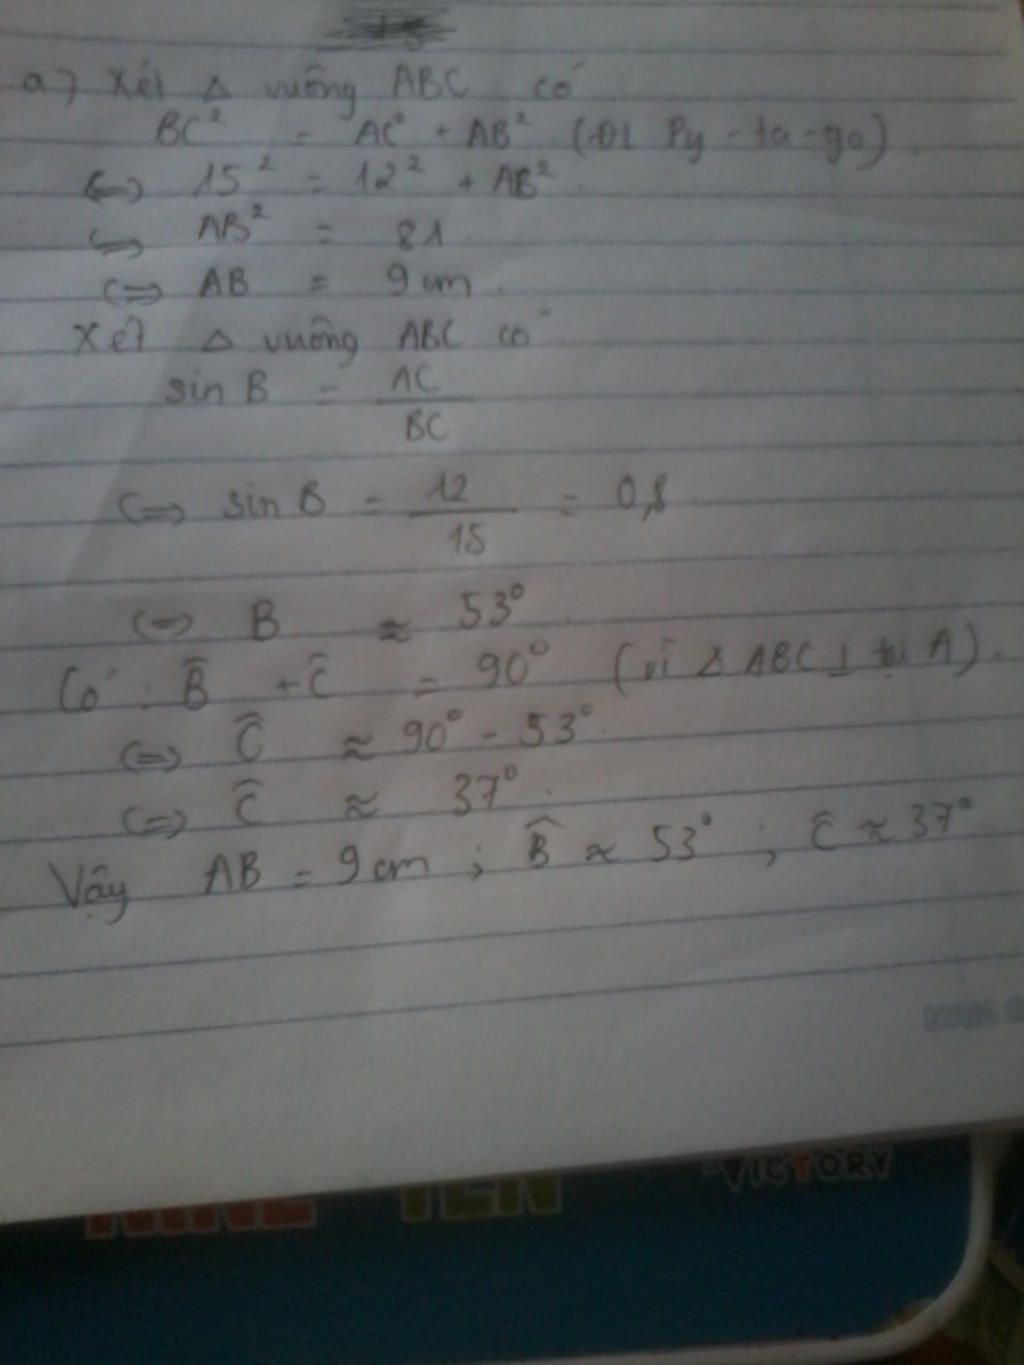 a) Xét Δ vuông ABC có
BC² = AC² + AB² (ĐL Py-ta-go).
<=> 15² = 12² + AB².
<=> AB² = 81
<=> AB = 9cm.
Xét Δ vuông ABC có
sin B = AC / BC
<=> sin B = 12 / 15 = 0,8
<=> B ≈ 53°.
Có: B̂ + Ĉ = 90° (vì Δ ABC ⊥ tại A).
<=> Ĉ ≈ 90° - 53°.
<=> Ĉ ≈ 37°.
Vậy AB = 9cm; B̂ ≈ 53°; Ĉ ≈ 37°
NINE TEN VICTORY